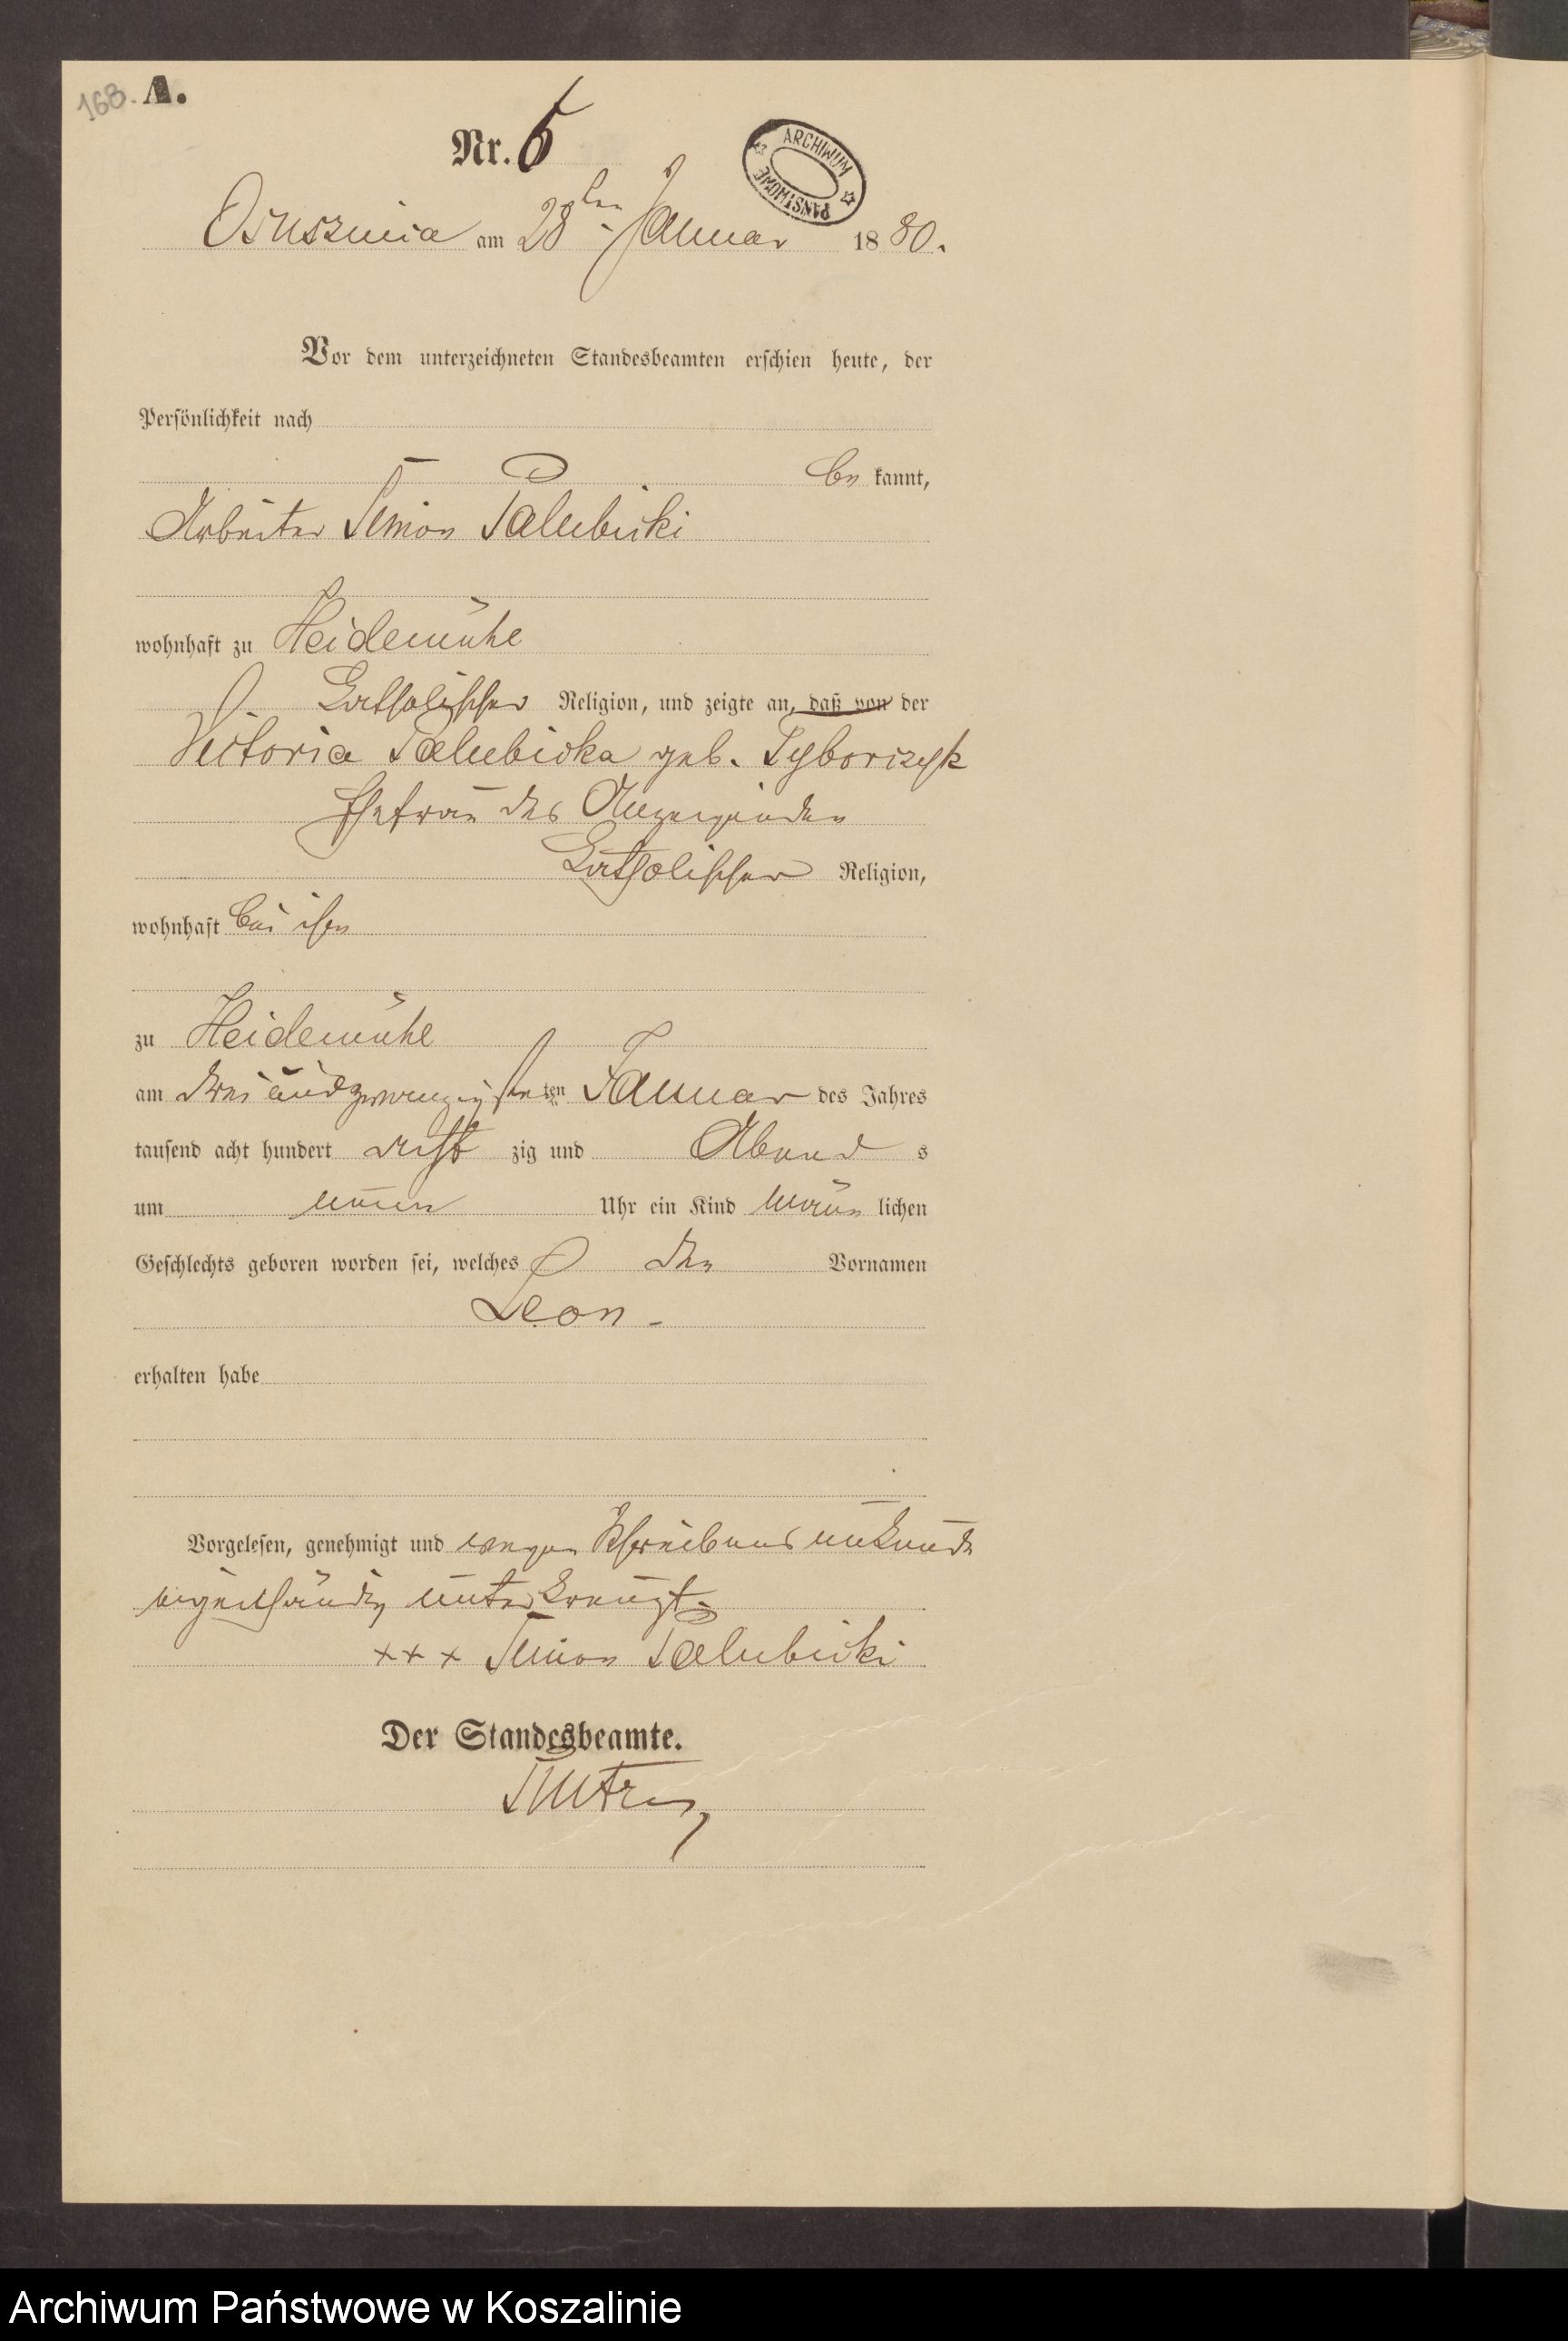 168. A.
Nr. 5
ARCHIWUM PAŃSTWOWE
Osusznica am 28ten Januar 1880.
Vor dem unterzeichneten Standesbeamten erschien heute, der
Persönlichkeit nach
be kannt,
Arbeiter Simon Palubicki
wohnhaft zu Heidemühl
katholischer Religion, und zeigte an, daß von der
Victoria Palubicka geb. Tyborczyk
Ehefrau des Anzeigenden
katholischer Religion,
wohnhaft bei ihm
zu Heidemühl
am drei und zwanzigsten ten Januar des Jahres
tausend acht hundert acht zig und Abend s
um neun Uhr ein Kind männ lichen
Geschlechts geboren worden sei, welches den Vornamen
Leon
erhalten habe
Vorgelesen, genehmigt und wegen Schreibens unkunde
eigenhändig unterkreuzt.
+++ Simon Palubicki
Der Standesbeamte.
Archiwum Państwowe w Koszalinie